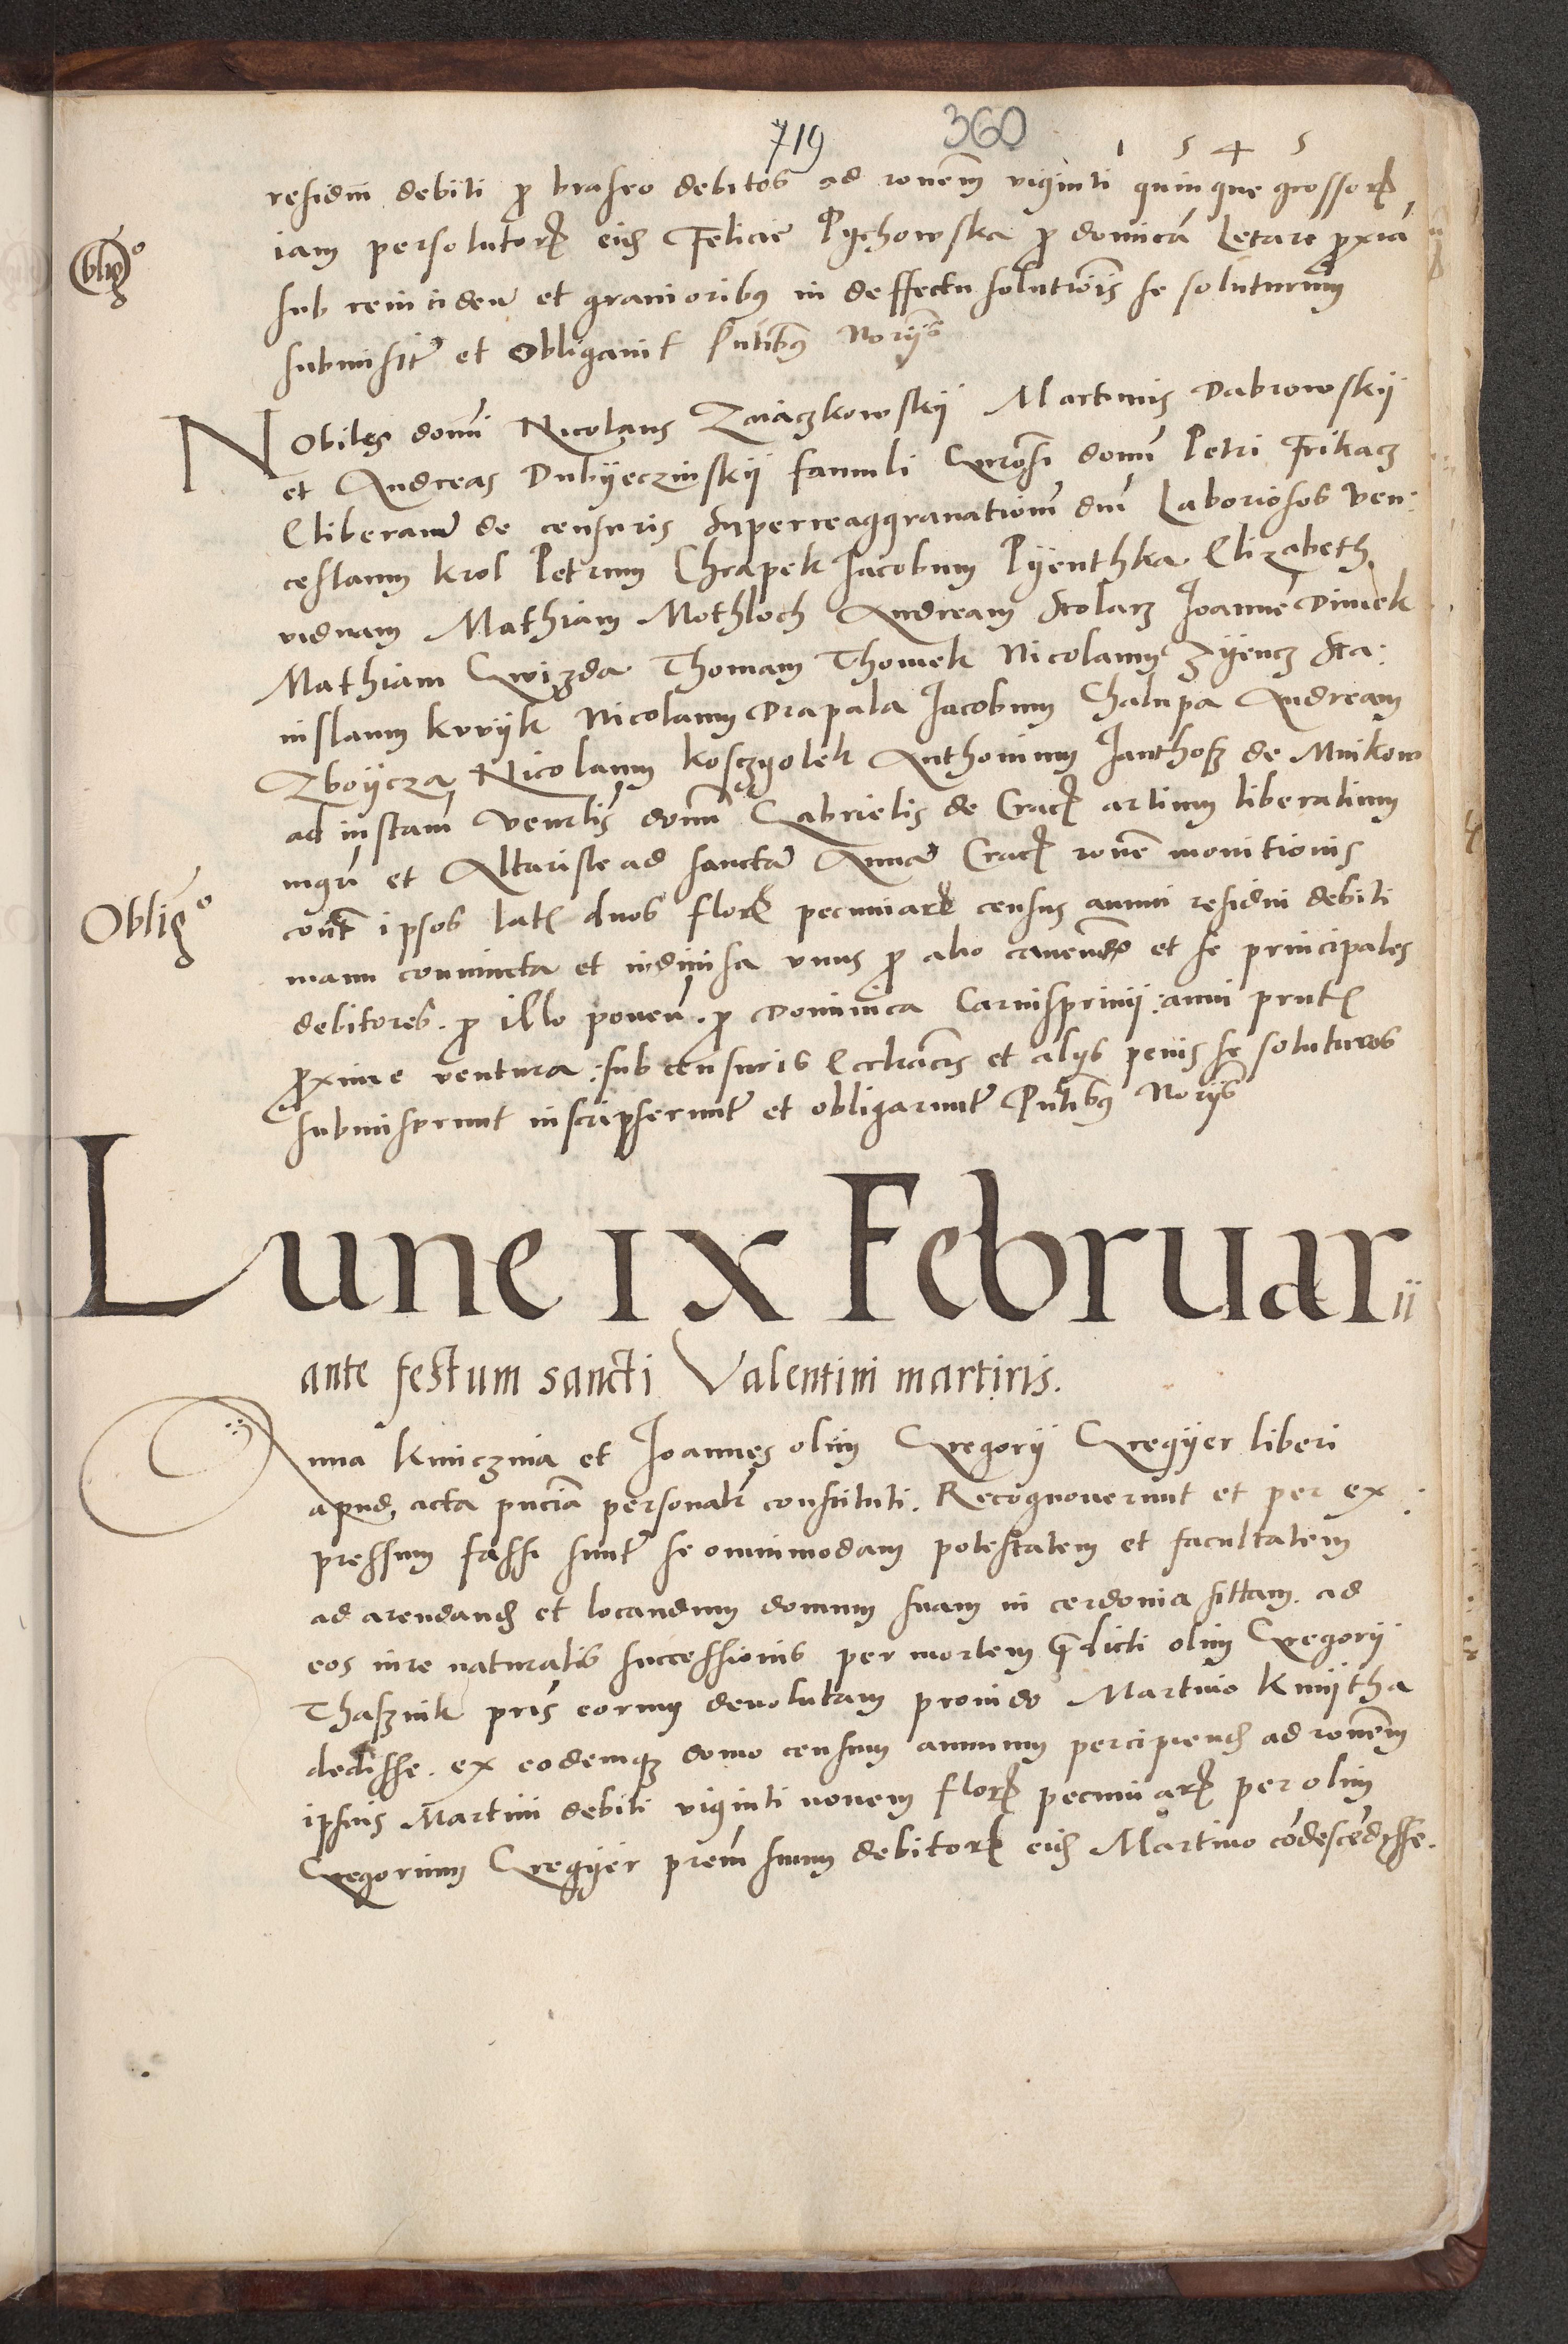 719 360 1 5 4 5
residui debiti p braseo debitos ad ronem viginti quinque grossork
Oblig°
iam persolutork eid Felicie Pychowska p dominica Letare pxia
sub reinciden et gravioribus in deffectu solutiois se soluturum
submisit et obligavit Pntibus Noriis
Nobiles domi Nicolaus Zaiaczkowskij Martinus Dabrowskij
et Andreas Dubijeczinskij famuli Gnrosi domi Petri Frikacz
Eliberant de censuris superreaggravationu dni Laboriosos Ven:
ceslaum Krol Petrum Chrapek Jacobum Pijenthka Elizabeth
viduam Mathiam Mothloch Andream Stolarz Joanne Dimek
Mathiam Gwizda Thomam Thomek Nicolaum Zijencz Sta:
nislaum Kurijk Nicolaum Drapala Jacobum Chalupa Andream
Zboijcza Nicolaum Kosczyolek Anthonium Janthosz de Mnikow
ad instam Venrlis domi Gabrielis de Crack artium liberalium
mgri et Altariste ad sanctam Annam Crack rone monitionis
Oblig°
cont ipsos lat duos flork pecuniark census annui residui debiti
manu coniuncta et indivisa unus p alio cavendo et se principales
debitores . p illo ponen . p Dominica Carnisprivii : anni prnt
pxime ventura : sub censuris Ecclracis et alijs penis se soluturos
submiserunt inscripserunt et obligarunt Pntibus Noriis
Lune IX Februarii
ante festum sancti Valentini martiris.
Anna Kmiczina et Joannes olim Gregorij Gregijer liberi
apud acta pncia personalr constituti. Recognoverunt et per ex:
pressum fassi sunt se omnimodam potestatem et facultatem
ad arendand et locandum domum suam in cerdonia sittam ad
eos iure naturalis successionis per mortem predicti olim Gregorij
Thasznik pris eorum devolutam provido Martino Kmijtha
dedisse . ex eodemqz domo censum annuum percipiend ad ronem
ipsius Martini debiti viginti novem flork pecuniark per olim
Gregorium Gregijer prem suum debitork eid Martino codescedisse.